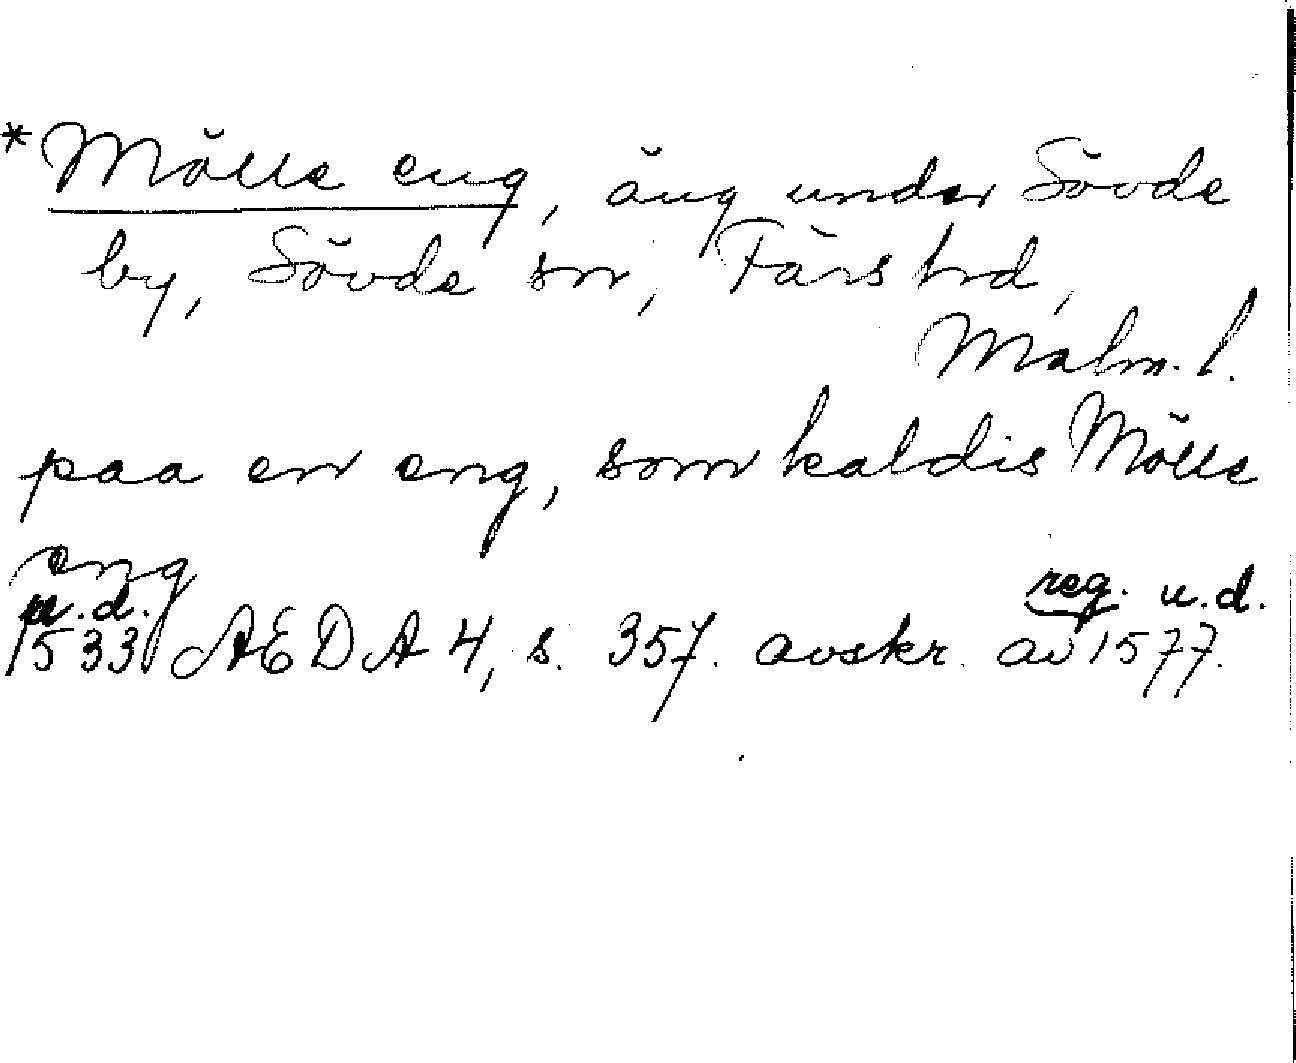 *Mölle eng, äng under Sövde
by, Sövde sn, Färs hd,
Malm. l.
paa en eng, som kaldis Mölle
eng
u.d. reg. u.d.
1533 AEDA 4, s. 357. avskr. av 1577.